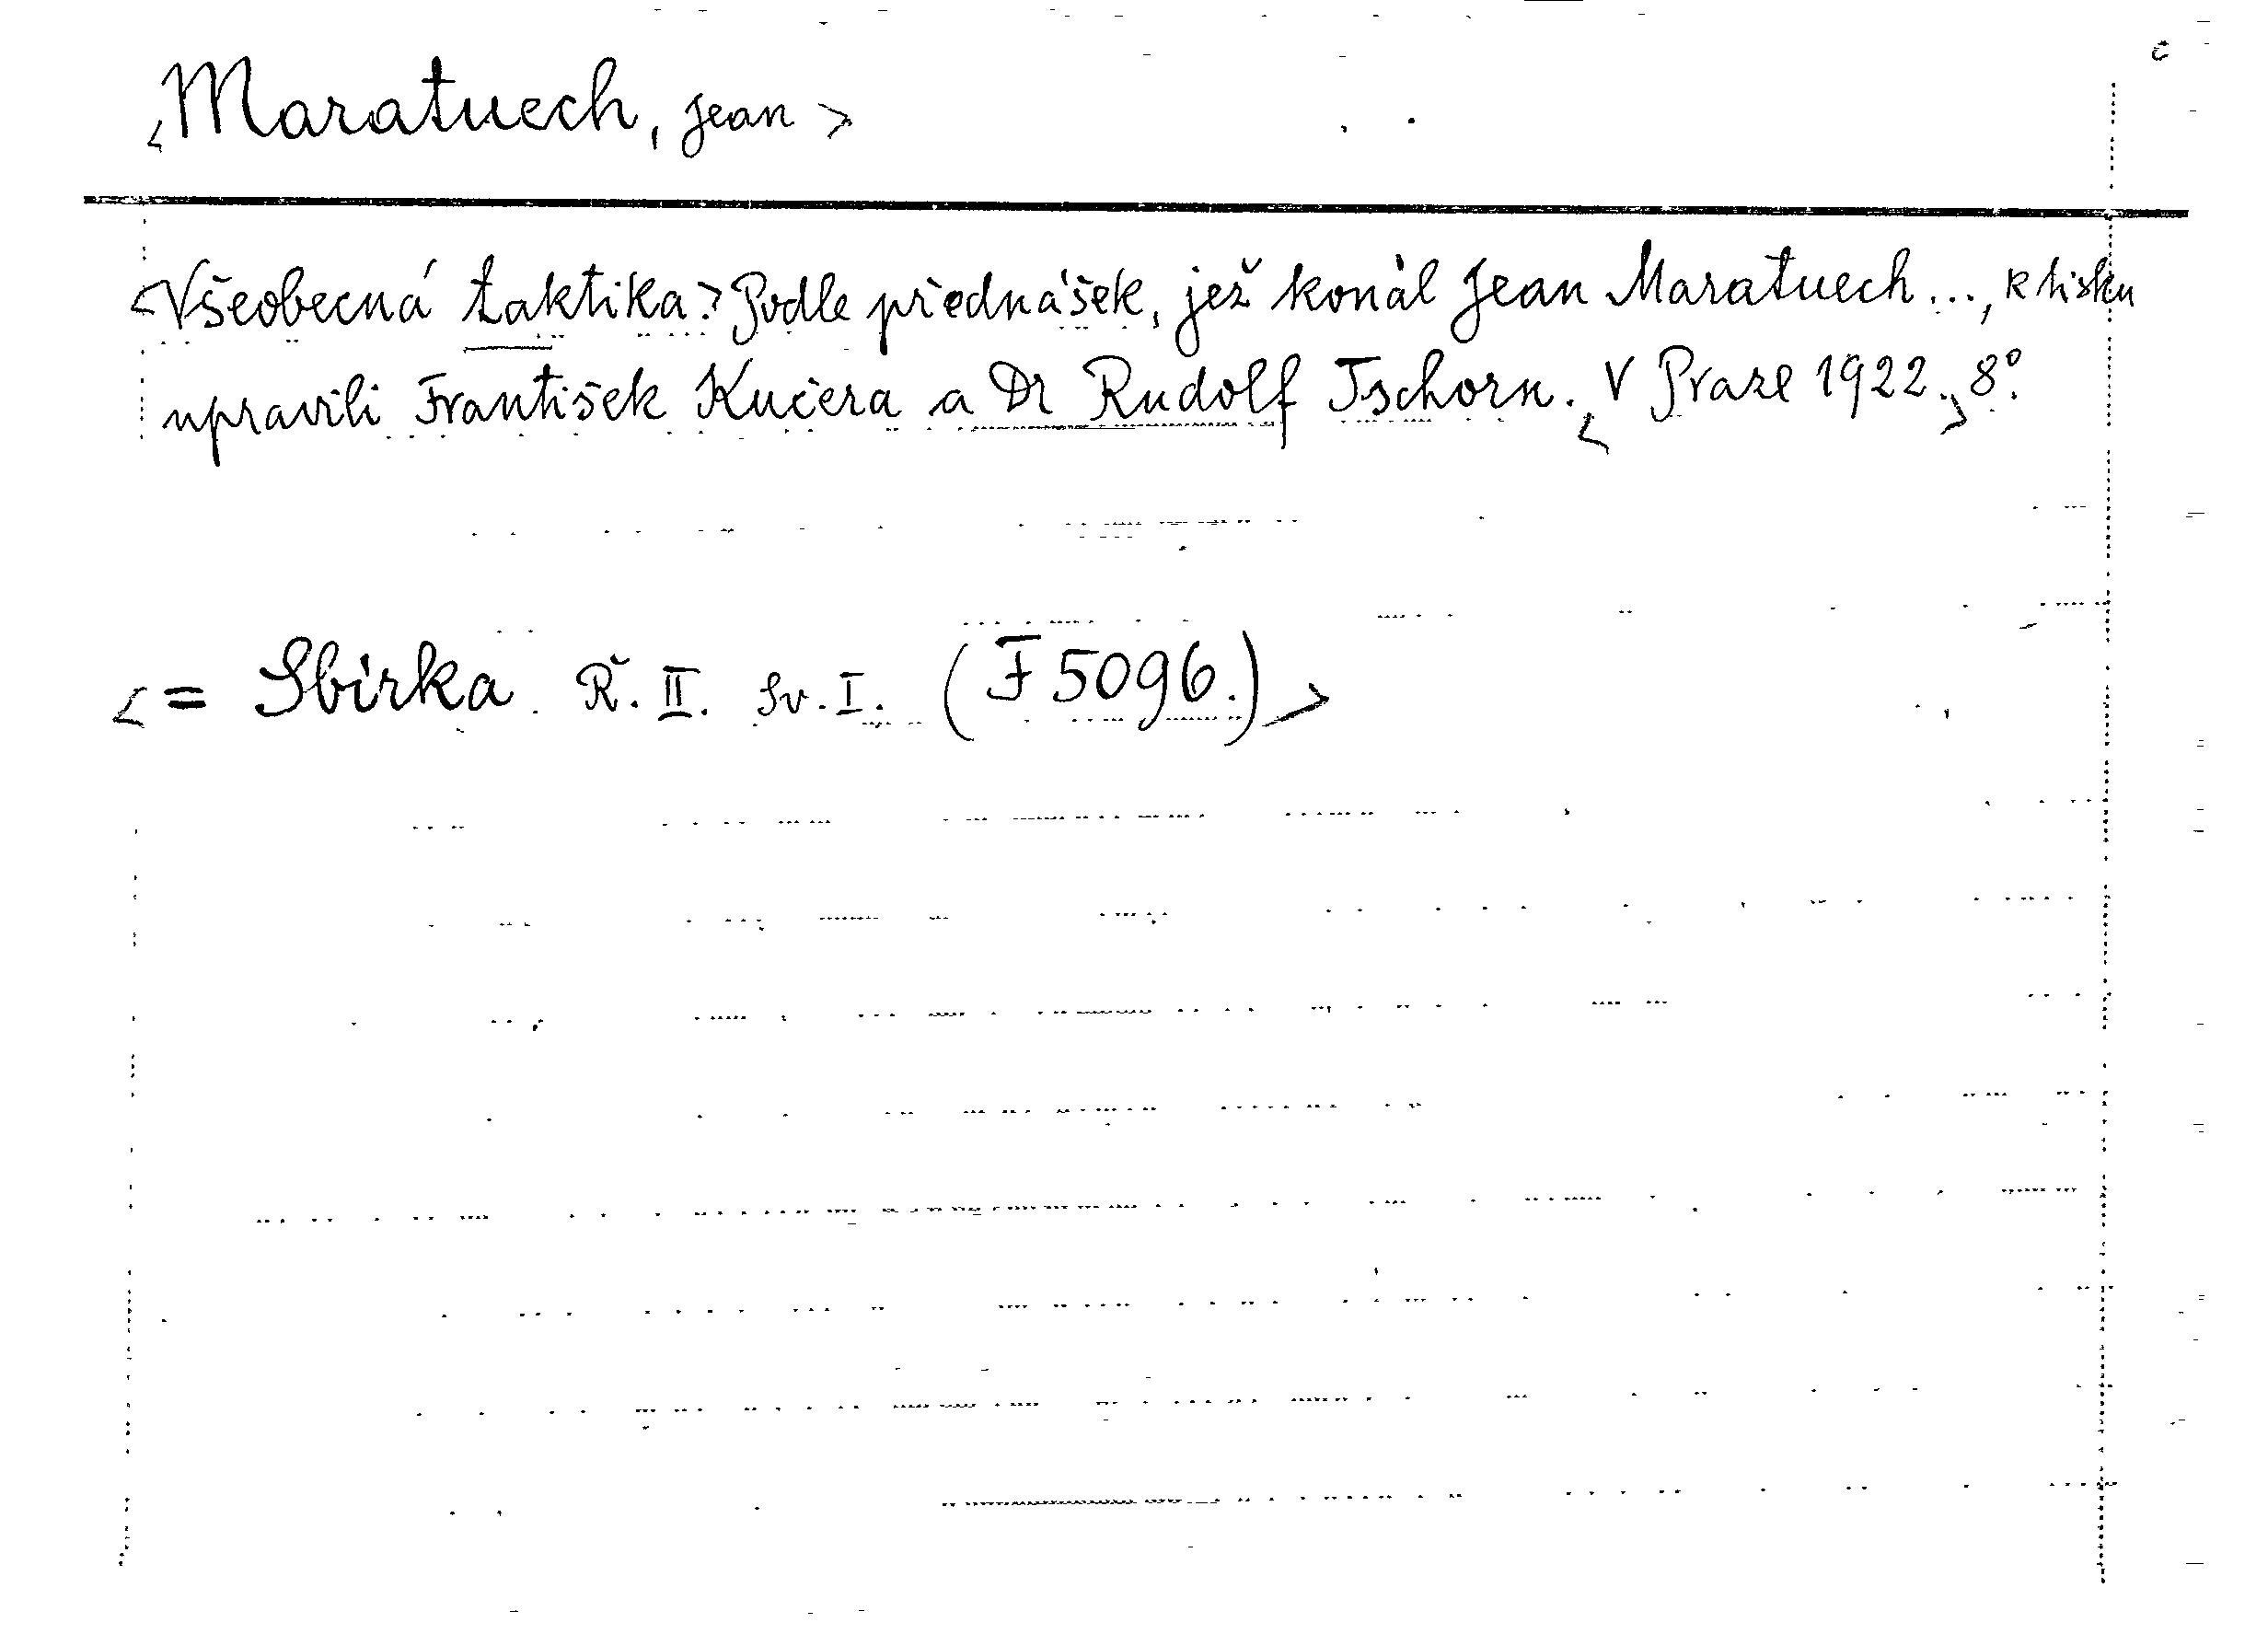 č
<Maratuech, Jean>
<Všeobecná taktika.> Podle přednášek, jež konal Jean Maratuech..., k tisku
upravili František Kučera a Dr Rudolf Tschorn. <V Praze 1922.> 8°.
<= Sbírka Ř. II. Sv. I. (F 5096.)>